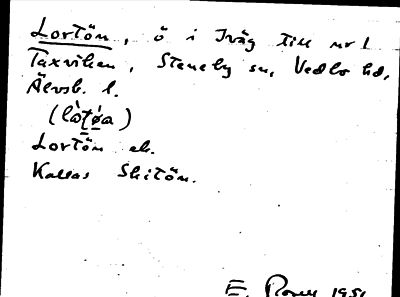 Lortön, ö i Iväg till nr 1
Taxviken, Steneby sn, Vedbo hd,
Älvsb. l.
Lortön ek.
Kallas Skitön.
E. 1951